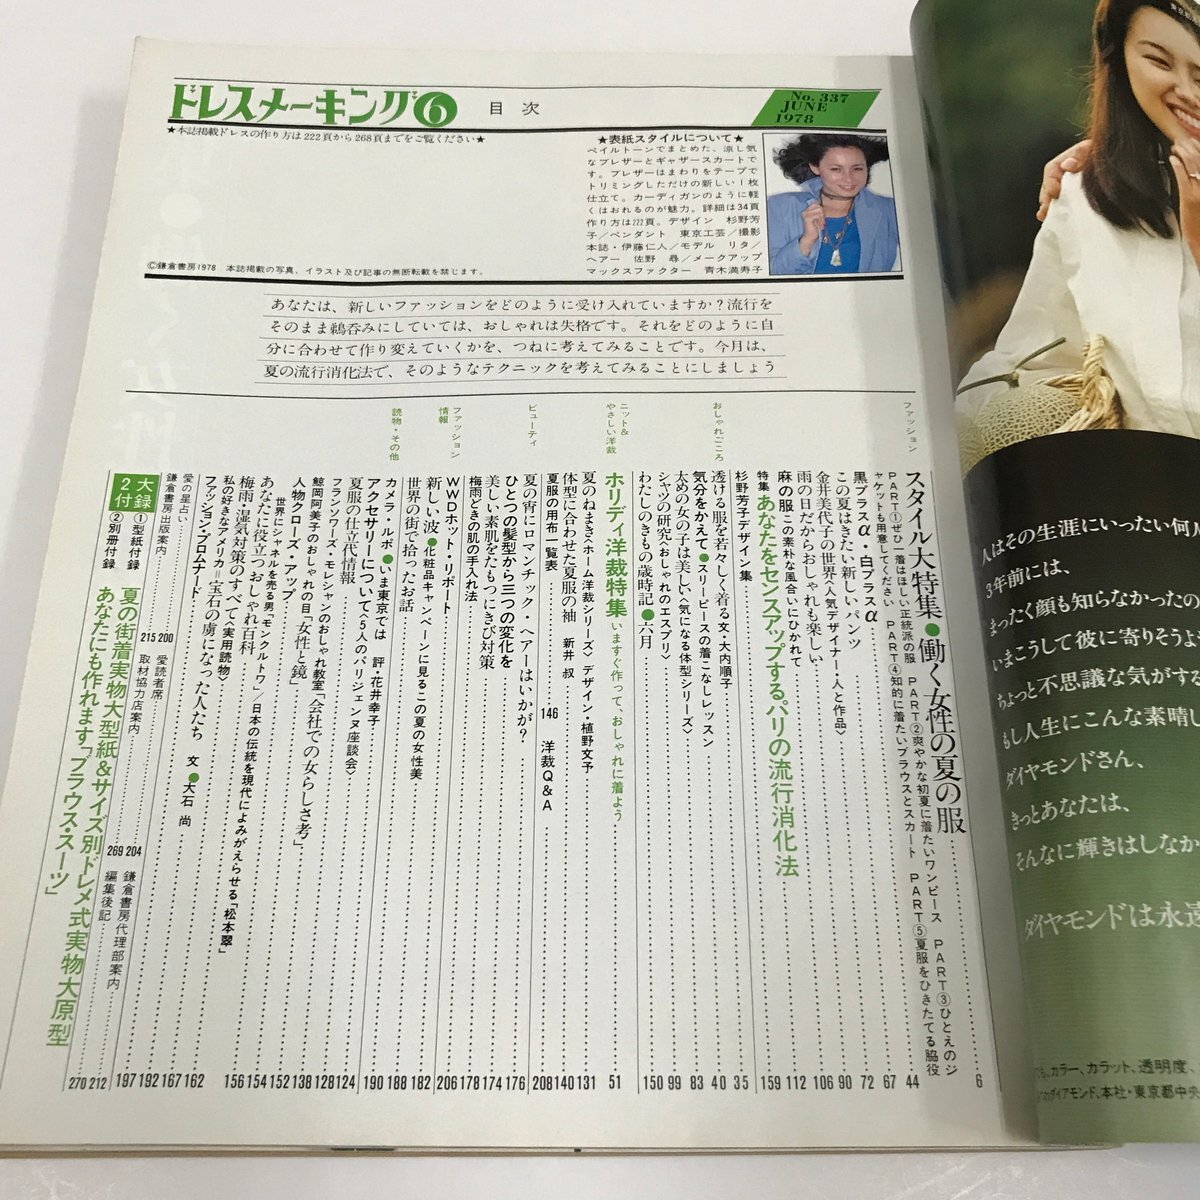 ドレスメーキング6
目次
No. 337
JUNE
1978
★本誌掲載ドレスの作り方は222頁から268頁までをご覧ください★
★表紙スタイルについて★
ペイルトーンでまとめた、涼し気
なブレザーとギャザースカートで
す。ブレザーはまわりをテープで
トリミングしただけの新しい1枚
仕立て。カーディガンのように軽
くはおれるのが魅力。詳細は34頁
作り方は222頁。デザイン 杉野芳
子/ペンダント 東京工芸/撮影
本誌・伊藤仁人/モデル リタ/
ヘアー 佐野 尋/メークアップ
マックスファクター 青木満寿子
©鎌倉書房1978 本誌掲載の写真、イラスト及び記事の無断転載を禁じます。
あなたは、新しいファッションをどのように受け入れていますか?流行を
そのまま鵜呑みにしていては、おしゃれは失格です。それをどのように自
分に合わせて作り変えていくかを、つねに考えてみることです。今月は、
夏の流行消化法で、そのようなテクニックを考えてみることにしましょう
ファッション
スタイル大特集●働く女性の夏の服 6
PART①ぜひ一着はほしい正統派の服 PART②爽やかな初夏に着たいワンピース PART③ひとえのジ
ャケットも用意してください PART④知的に着たいブラウスとスカート PART⑤夏服をひきたてる脇役
黒プラスα・白プラスα 44
この夏はきたい新しいパンツ 67
金井美代子の世界〈人気デザイナー・人と作品〉 72
雨の日だからおしゃれも楽しい 90
麻の服 この素朴な風合いにひかれて 106
特集 あなたをセンスアップするパリの流行消化法 112
杉野芳子デザイン集 159
おしゃれごころ
透ける服を若々しく着る 文・大内順子 35
気分をかえて●スリーピースの着こなしレッスン 40
太めの女の子は美しい〈気になる体型シリーズ〉 83
シャツの研究〈おしゃれのエスプリ〉 99
わたしのきもの歳時記●六月 150
ニット&
やさしい洋裁
ホリディ洋裁特集 いますぐ作って、おしゃれに着よう 51
夏のねまき〈ホーム洋裁シリーズ〉 デザイン・植野文予 131
体型に合わせた夏服の袖 新井 叔 140
夏服の用布一覧表 146
洋裁Q&A 208
ビューティ
夏の宵にロマンチック・ヘアーはいかが? 176
ひとつの髪型から三つの変化を 174
美しい素肌をたもつにきび対策 178
梅雨どきの肌の手入れ法 206
ファッション
情報
WWDホット・リポート 182
新しい波●化粧品キャンペーンに見るこの夏の女性美 188
世界の街で拾ったお話 190
読物・その他
カメラ・ルポ●いま東京では 評・花井幸子
アクセサリーについて〈5人のパリジェンヌ座談会〉 124
夏服の仕立代情報 128
フランソワーズ・モレシャンのおしゃれ教室「会社での女らしさ考」 138
鯨岡阿美子のおしゃれの目「女性と鏡」 152
人物クローズ・アップ
世界にシャネルを売る男「モンクルトワ」/日本の伝統を現代によみがえらせる「松本翠」 154
あなたに役立つおしゃれ百科 156
梅雨・湿気対策のすべて〈実用読物〉 162
私の好きなアメリカ=宝石の虜になった人たち 文●大石 尚 167
ファッション・プロムナード 192
愛の星占い 197
鎌倉書房出版案内 200
愛読者席 204
鎌倉書房代理部案内 212
215
取材協力店案内 269
編集後記 270
2大付録
①型紙付録 夏の街着実物大型紙&サイズ別ドレメ式実物大原型
②別冊付録 あなたにも作れます「ブラウス・スーツ」
人はその生涯にいったい何人
3年前には、
まったく顔も知らなかったの
いまこうして彼に寄りそうよ
ちょっと不思議な気がする
もし人生にこんな素晴し
ダイヤモンドさん、
きっとあなたは、
そんなに輝きはしなか
ダイヤモンドは永遠
カラー、カラット、透明度、
ダイアモンド、本社・東京都中央